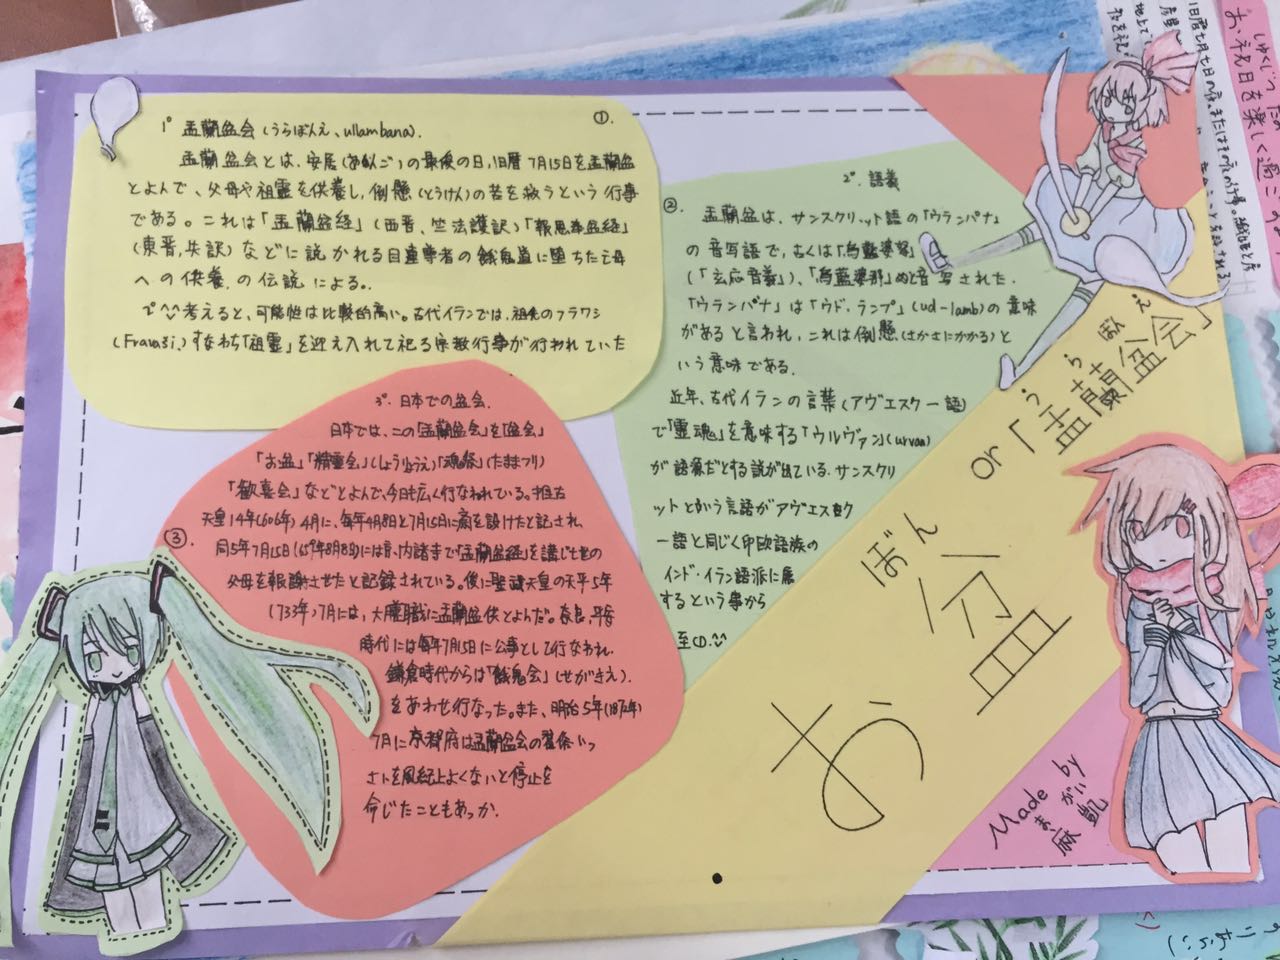 ①.
1° 盂蘭盆会(うらぼんえ、ullambana).
盂蘭盆会とは、安居(あんご)の最後の日、旧暦7月15日を盂蘭盆
とよんで、父母や祖霊を供養し、倒懸(とうけん)の苦を救うという行事
である。これは「盂蘭盆経」(西晋、竺法護訳)「報恩奉盆経」
(東晋、失訳)などに説かれる目連尊者の餓鬼道に堕ちた母
への供養の伝説による。
考えると、可能性は比較的高い。古代イランでは、祖先のフラワシ
(Fravaši)すなわち「祖霊」を迎え入れて祀る宗教行事が行われていた
②.
2° 語義
盂蘭盆は、サンスクリット語の「ウランバナ」
の音写語で、古くは「烏藍婆拏」
(「玄応音義」)、「烏藍婆那」と音写された.
「ウランバナ」は「ウド・ランブ」(ud-lamb)の意味
があると言われ、これは倒懸(さかさにかかる)と
いう意味である.
近年、古代イランの言葉(アヴェスター語)
で「霊魂」を意味する「ウルヴァン」(urvan)
が語源だとする説が出ている.サンスクリ
ットとかう言語がアヴェスタ
ー語と同じく印欧語族の
インド・イラン語派に属
するという事から
至①.^^
③.
3° 日本での盆会.
日本では、この「盂蘭盆会」を「盆会」
「お盆」「精霊会」(しょうりょうえ)「魂祭」(たままつり)
「歓喜会」などとよんで、今日も広く行なわれている。推古
天皇14年(606年)4月に、毎年4月8日と7月15日に斎を設けたと記され、
同5年7月15日(659年8月8日)には、内諸寺で「盂蘭盆経」を講じ七世の
父母を報謝させたと記録されている。後に聖武天皇の天平5年
(733年)7月には、大膳職に盂蘭盆供とよんだ。奈良、平安
時代には毎年7月15日に公事として行なわれ、
鎌倉時代からは「餓鬼会」(せがきえ).
をあわせ行なった。また、明治5年(1872年)
7月に京都府は盂蘭盆会の習俗いっ
さいを風紀上よくないと停止を
命じたこともあっか.
お盆
ぼん
or「盂蘭盆会」
うらぼんえ
Made by
麻 凱
ま がい
お祝日を楽しく過ごす
しゅくじつ